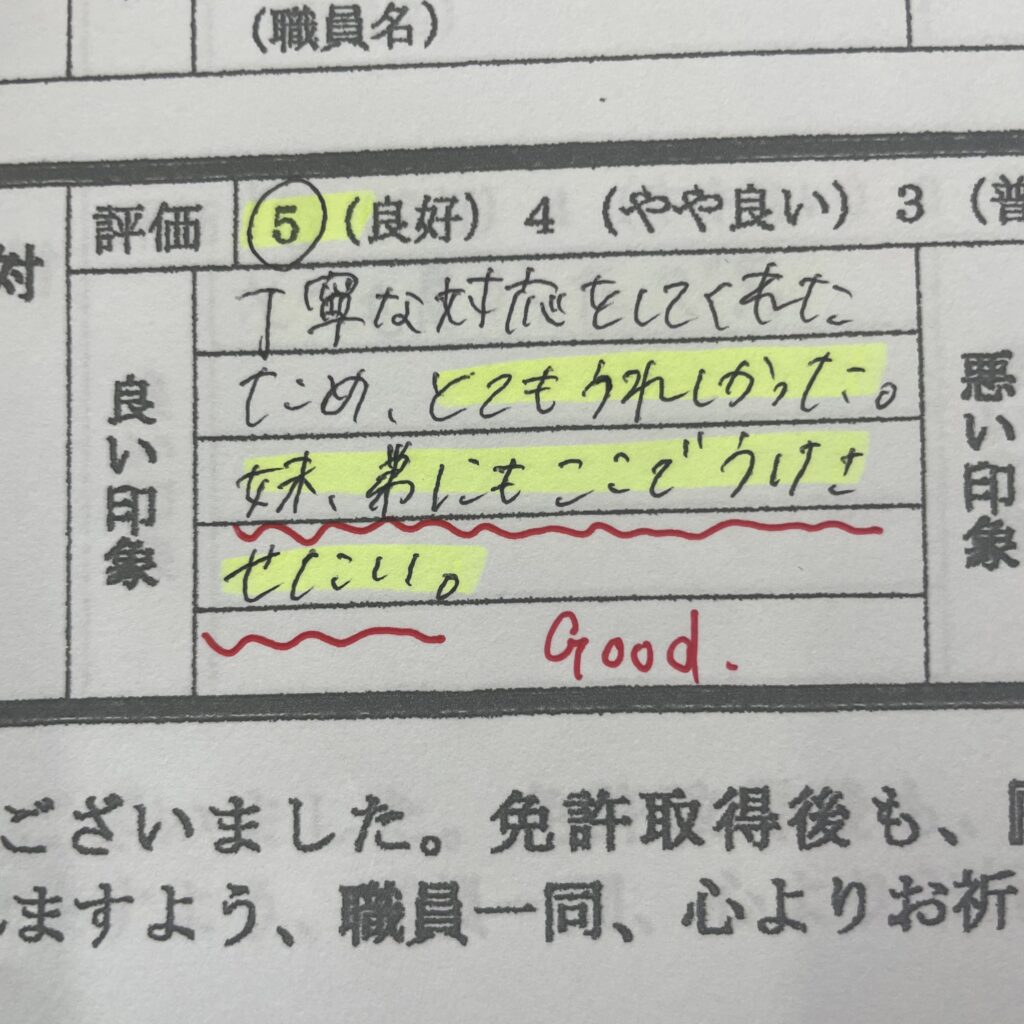 (職員名)
評価 5 (良好) 4 (やや良い) 3 (普
対
良い印象
丁寧な対応をしてくれた
ため、とてもうれしかった。
妹、弟にもここでうけさ
せたい。
Good.
悪い印象
ございました。免許取得後も、
ますよう、職員一同、心よりお祈